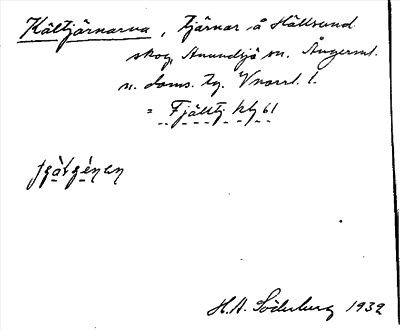 Kältjärnarna, tjärnar å Hällsund
skog, Anundsjö sn. Ångerml.
n. doms. tg. Vnorrl. l.
= Fjälltj kbg 61
H.A. Söderberg 1932